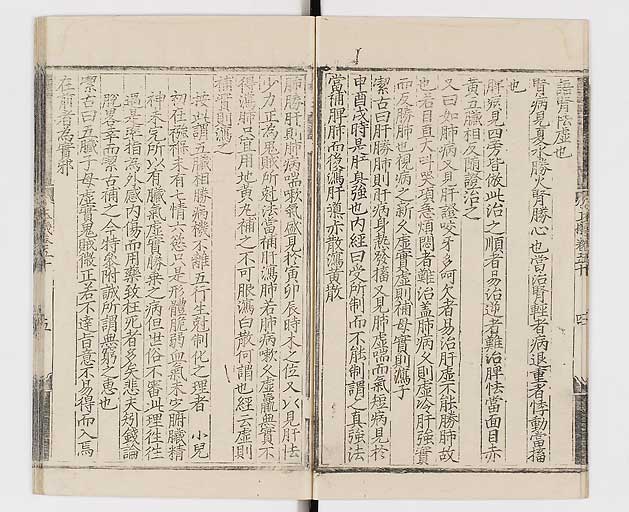 語腎怯虛也
腎病見夏水勝火腎勝心也當治腎輕者病退重者悸動當搐
也
肝病見四旁皆依此治之順者易治逆者難治脾怯當面目赤
黃五臟相反隨證治之
又曰如肺病又見肝證咬牙多呵欠者易治肝虛不能勝肺故
也若目直大叫哭項急煩悶者難治蓋肺病久則虛冷肝強實
而反勝肺也視病之新久虛實虛則補母實則瀉子
潔古曰肝勝肺則肝病身熱發搐又見肺虛喘而氣短病見於
申酉戌時是肝眞強也內經曰受所制而不能制謂之眞強法
當補脾肺而後瀉肝 散瀉黃散
肺勝肝則肺病喘嗽氣盛見於寅卯辰時木之位又以見肝怯
少力正為鬼賊所尅法當補肝瀉肺若肺病嗽久虛羸無實不
得瀉肺只宜用地黃丸補之不可服瀉白散何謂也經云虛則
補實則瀉之
按此謂五臟相勝病機不離五行生尅制化之理者 小兒
初在襁褓未有七情六慾只是形體脆弱血氣未定腑臟精
神未完所以有臟氣虛實勝乘之病但世俗不審此理往往
過是率指為外感內傷而用藥致枉死者多矣悲夫矧錢論
脫畧幸而潔古補之今特參附誠所謂無窮之惠也
潔古曰五臟子母虛實鬼賊微正若不達旨意不易得而入焉
在前者為實邪